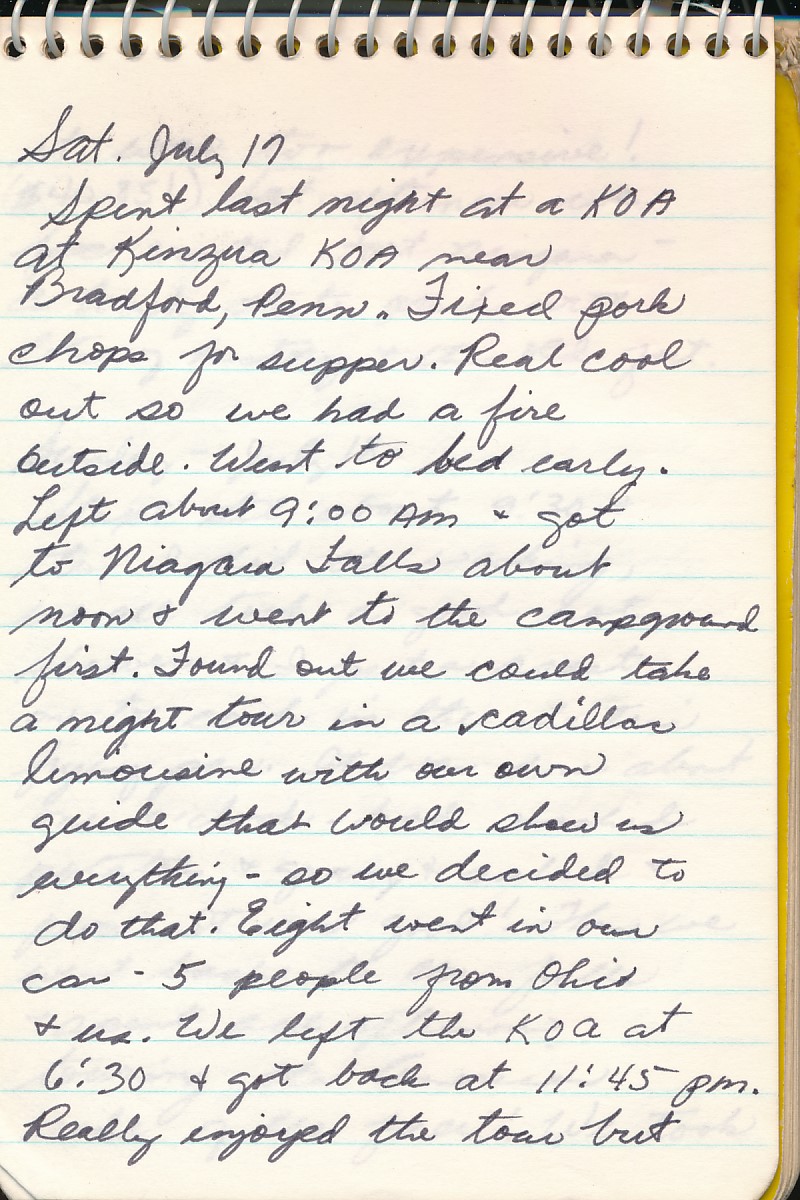 Sat. July 17
Spent last night at a KOA
at Kinzua KOA near
Bradford, Penn. Fixed pork
chops for supper. Real cool
out so we had a fire
outside. Went to bed early.
Left about 9:00 AM & got
to Niagara Falls about
noon & went to the campground
first. Found out we could take
a night tour in a cadillac
limousine with our own
guide that would show us
everything - so we decided to
do that. Eight went in our
car - 5 people from Ohio
& us. We left the KOA at
6:30 & got back at 11:45 pm.
Really enjoyed the tour but